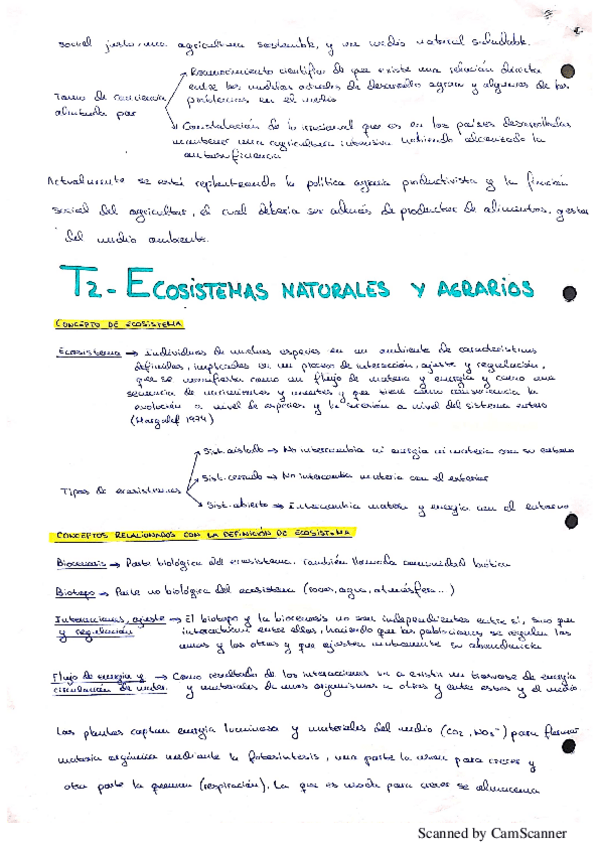 social justo, una agricultura sostenible, y un medio natural saludable.
Toma de conciencia alentada por
Reconocimiento científico de que existe una relación directa
entre los modelos actuales de desarrollo agrario y algunos de los
problemas en el medio
Constatación de lo irracional que es en los países desarrollados
mantener una agricultura intensiva habiendo alcanzado la
autosuficiencia
Actualmente se está replanteando la política agraria productivista y la función
social del agricultor, el cual debería ser además de productor de alimentos, gestor
del medio ambiente.
T2 - ECOSISTEMAS NATURALES Y AGRARIOS
CONCEPTO DE ECOSISTEMA
Ecosistema → Individuos de muchas especies en un ambiente de características
definidas, implicados en un proceso de interacción, ajuste y regulación,
que se manifiesta como un flujo de materia y energía y como una
secuencia de nacimientos y muertes y que tiene como consecuencia la
evolución a nivel de especies y la sucesión a nivel del sistema entero
(Margalef 1974)
Tipos de ecosistemas
Sist. aislado → No intercambia ni energía ni materia con su entorno
Sist. cerrado → No intercambia materia con el exterior
Sist. abierto → Intercambia materia y energía con el entorno
CONCEPTOS RELACIONADOS CON LA DEFINICIÓN DE ECOSISTEMA
Biocenosis → Parte biológica del ecosistema. También llamada comunidad biótica
Biotopo → Parte no biológica del ecosistema (rocas, agua, atmósfera...)
Interacciones, ajuste → El biotopo y la biocenosis no son independientes entre sí, sino que
y regulación interactúan entre ellos, haciendo que las poblaciones se regulen las
unas y las otras y que ajusten mutuamente su abundancia
Flujo de energía y → Como resultado de las interacciones va a existir un trasvase de energía
circulación de mater. y materiales de unos organismos a otros y entre estos y el medio
Las plantas captan energía luminosa y materiales del medio (CO2, NO3⁻) para formar
materia orgánica mediante la fotosíntesis, una parte la usan para crecer y
otra parte la queman (respiración). La que es usada para crecer se almacena
Scanned by CamScanner